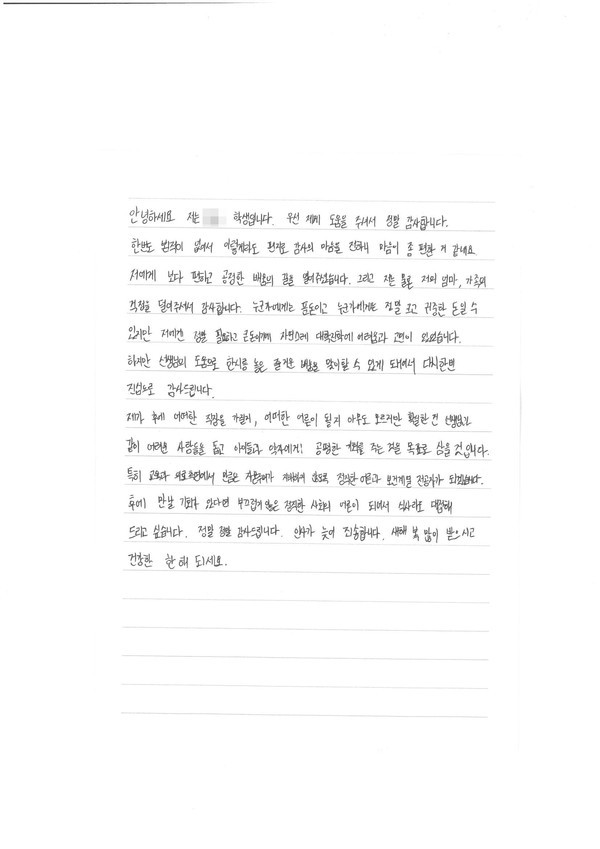 안녕하세요 저는 학생입니다. 우선 제게 도움을 주셔서 정말 감사합니다.
한번도 뵌적이 없어서 이렇게라도 편지로 감사의 마음을 전하니 마음이 좀 편한 거 같네요
저에게 보다 편하고 공정한 배움의 길을 열어주셨습니다. 그리고 저는 물론 저희 엄마, 가족의
걱정을 덜어주셔서 감사합니다. 누군가에게는 푼돈이고 누군가에게는 정말 크고 귀중한 돈일 수
있지만 저에겐 정말 필요하고 큰돈이기에 자연스레 대학진학에 어려움과 고민이 있었습니다.
하지만 선생님의 도움으로 한시름 놓은 즐거운 배움을 맞이할 수 있게 되어서 다시한번
진심으로 감사드립니다.
제가 후에 어떠한 직업을 가질지, 어떠한 어른이 될지 아무도 모르지만 확실한 건 선생님과
같이 어려운 사람들을 돕고 아이들과 약자에게 공평한 기회를 주는 것을 목표로 삼을 것입니다.
특히 교육과 의료 측면에서 만큼은 정의로운 어른과 보건계열 전문가가 되겠습니다.
후에 만날 기회가 있다면 부끄럽지 않은 정직한 사회의 어른이 되어서 식사라도 대접해
드리고 싶습니다. 정말 정말 감사드립니다. 인사가 늦어 죄송합니다. 새해 복 많이 받으시고
건강한 한 해 되세요.